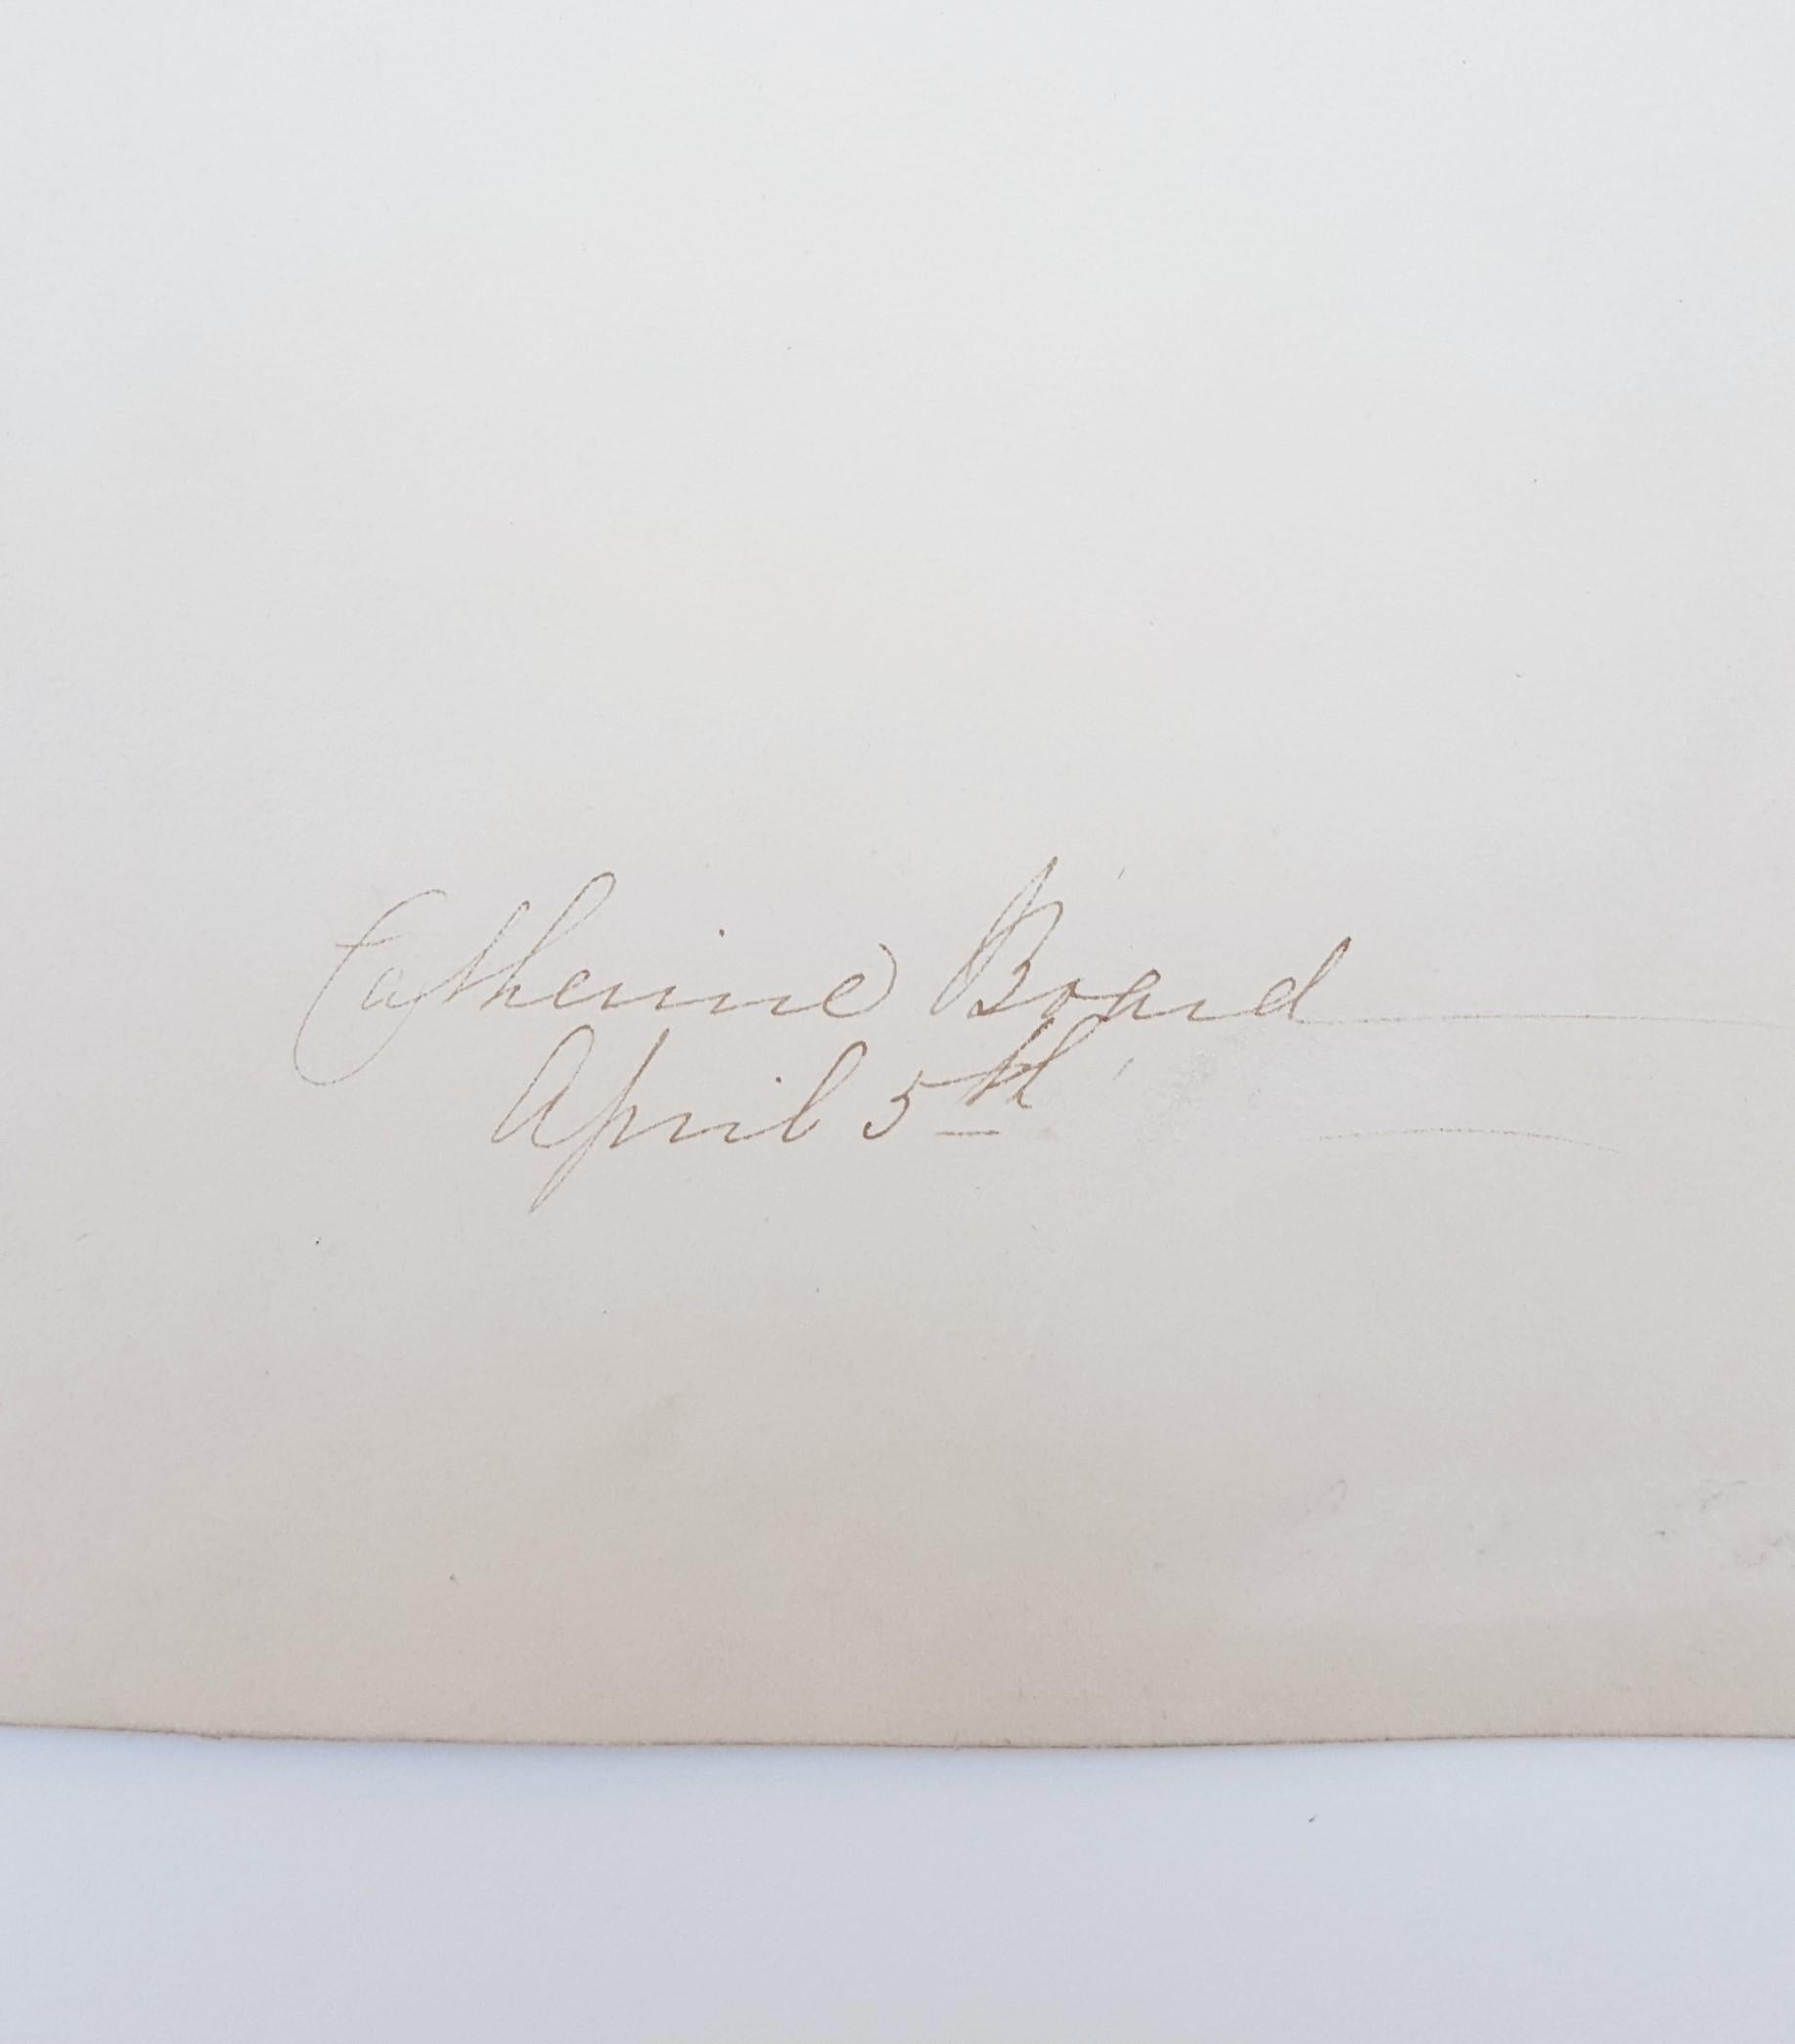 Catherine Board
April 5th